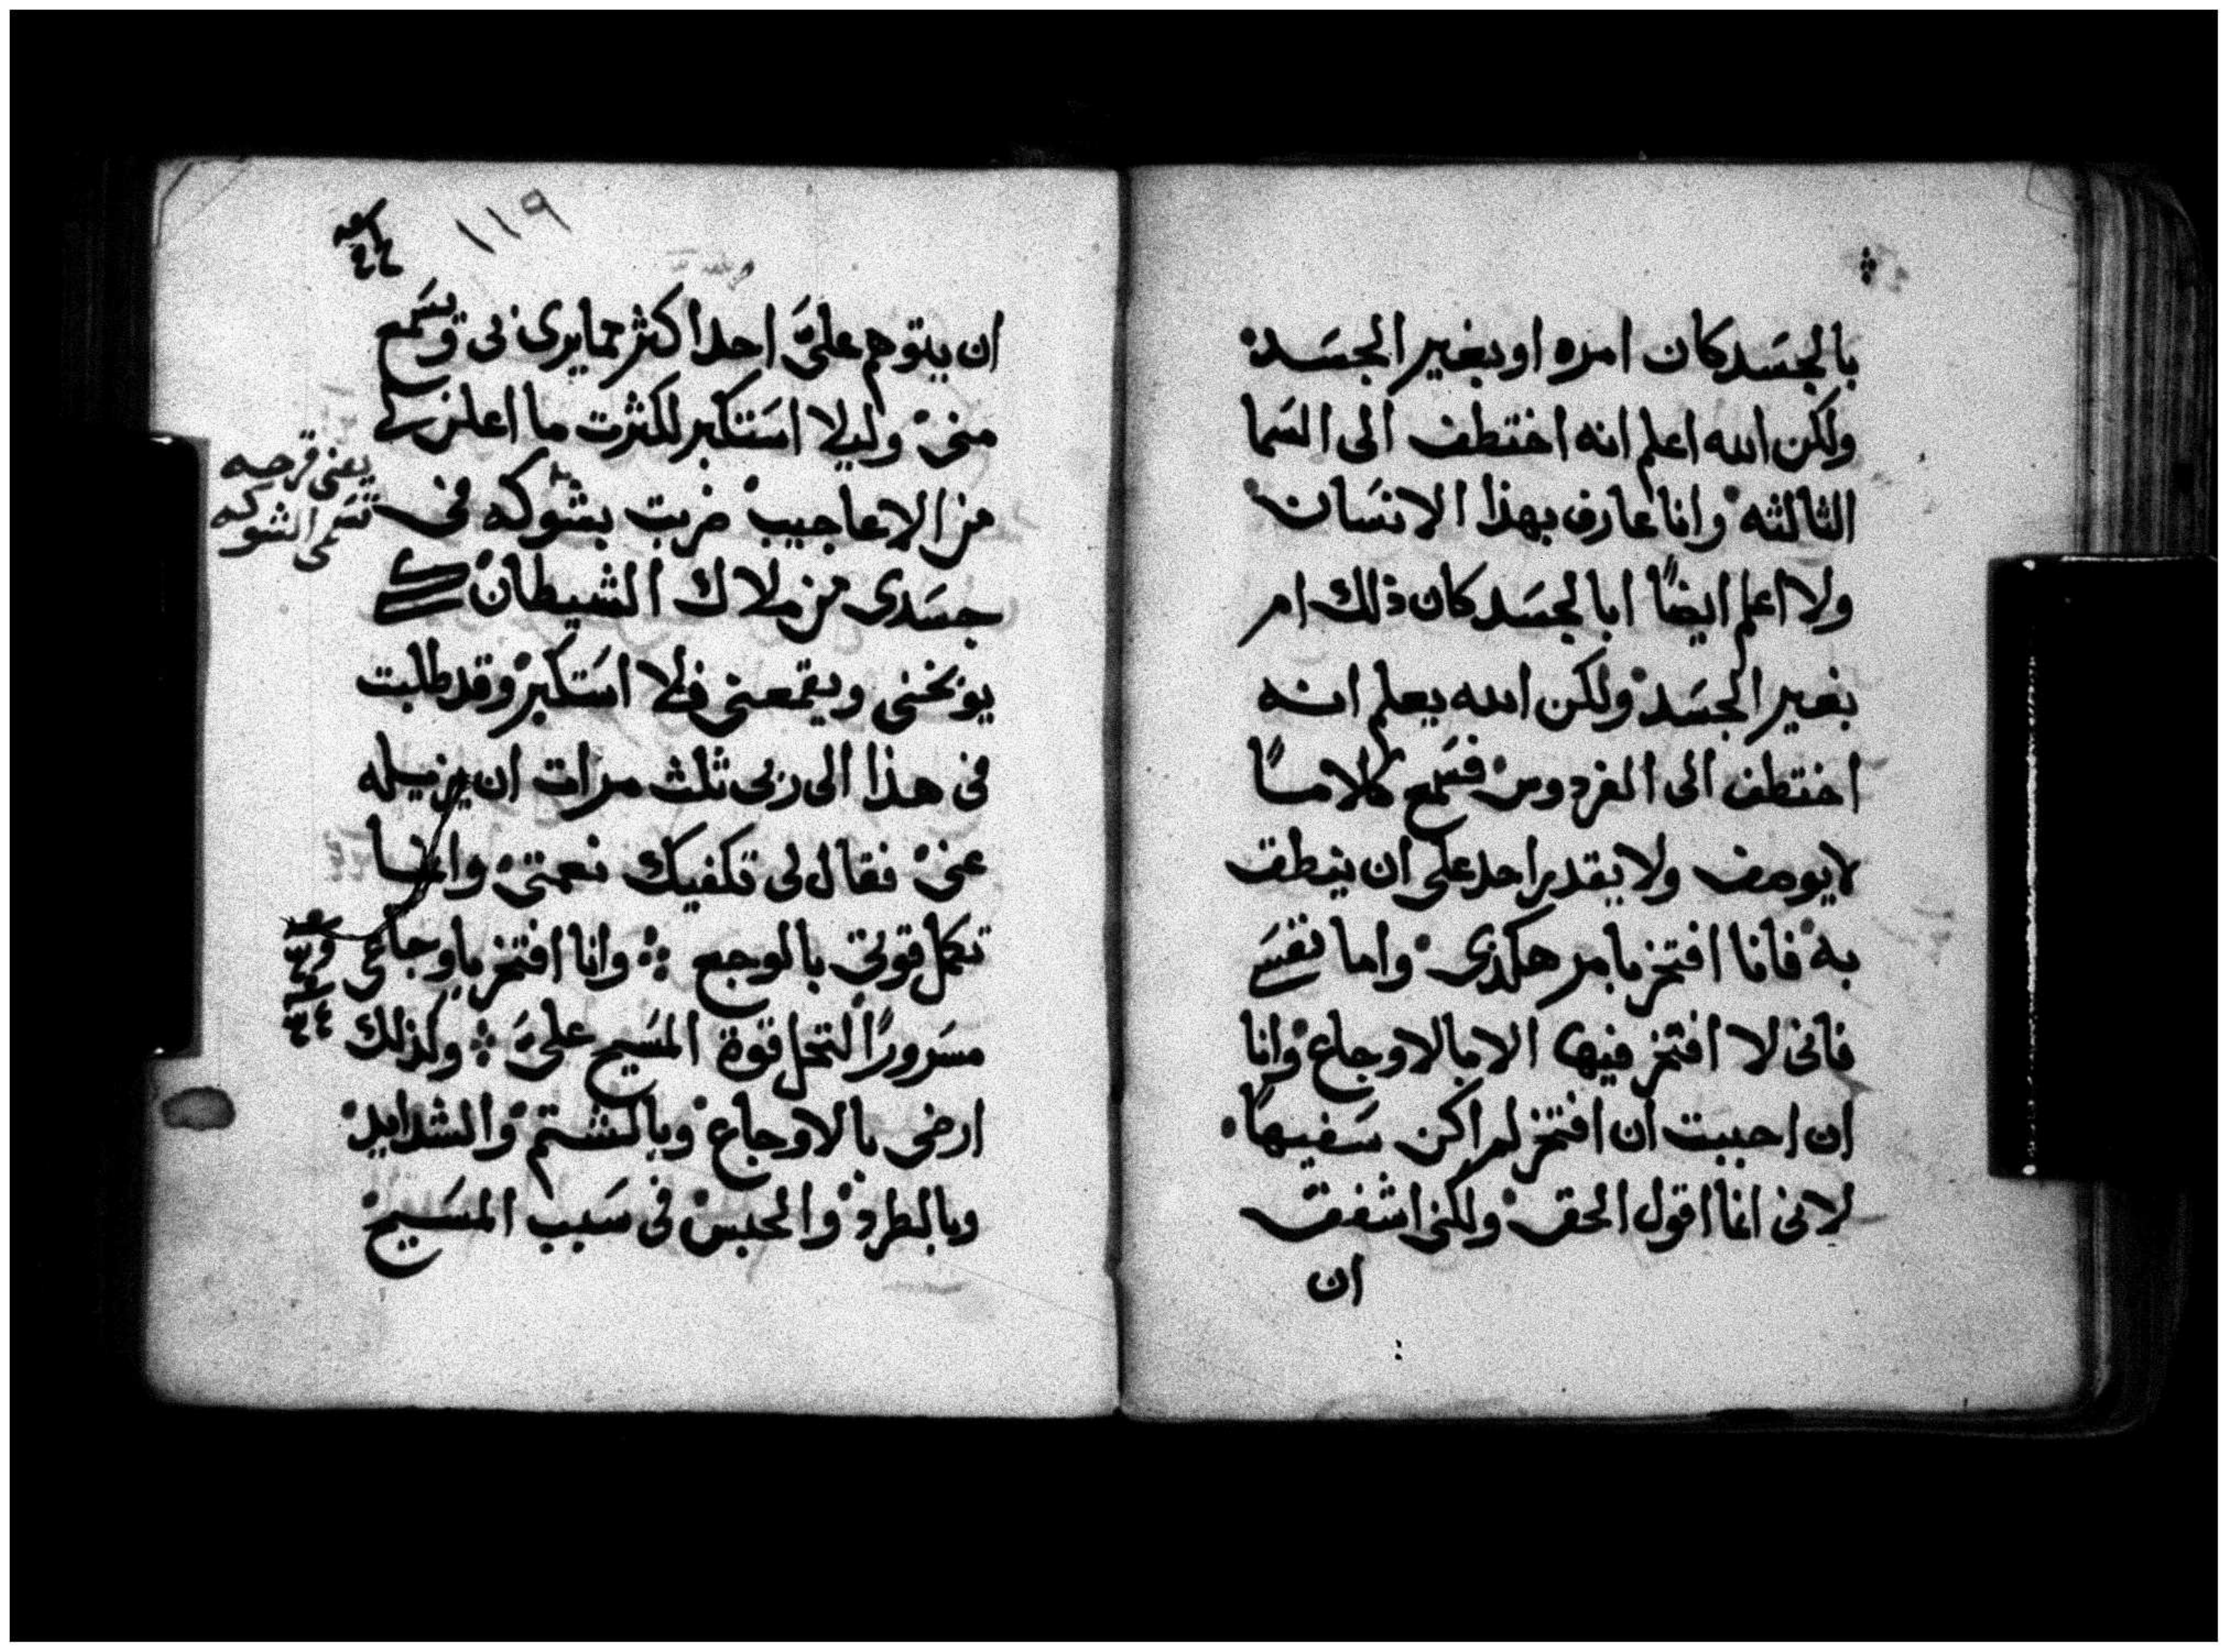 بالجسَد كان امره او بغير الجسَد
ولكن الله اعلم انه اختطف الى السَما
الثالثه وانا عارف بهذا الانسَان
ولا اعلم ايضًا ابالجسَد كان ذلك ام
بغير الجسَد ولكن الله يعلم انه
اختطف الى الفردوس فسَمع كلامًا
لا يوصف ولا يقدر احد على ان ينطق
به فانا افتخر بامر هكذى واما نفسَي
فانى لا افتخر فيها الا بالاوجاع وانا
ان احببت ان افتخر لم اكن سَفيهًا
لانى انما اقول الحق ولكنى اشفق
ان
١١٩
ان يتوهم علىَّ احد اكثر مما يرى فى وتسَمع
منى وليلا استَكبر لكثرت ما اعلن لى
من الاعاجيب ضربت بشوكه فى
جسَدى من ملاك الشيطان
يعنى قرحه
تسَمى الشوكه
يوبخنى ويقمعنى فلا استَكبر وقد طلبت
فى هذا الى ربى ثلث مرات ان يزيله
عنى فقال لى تكفيك نعمتى وانما
تكمل قوتى بالوجع وانا افتخر باوجاعى
مسَرورًا لتحل قوة المسَيح علىَّ ولذلك
ارضى بالاوجاع وبالشتم والشدايد
وبالطرد والحبس فى سَبب المسَيح